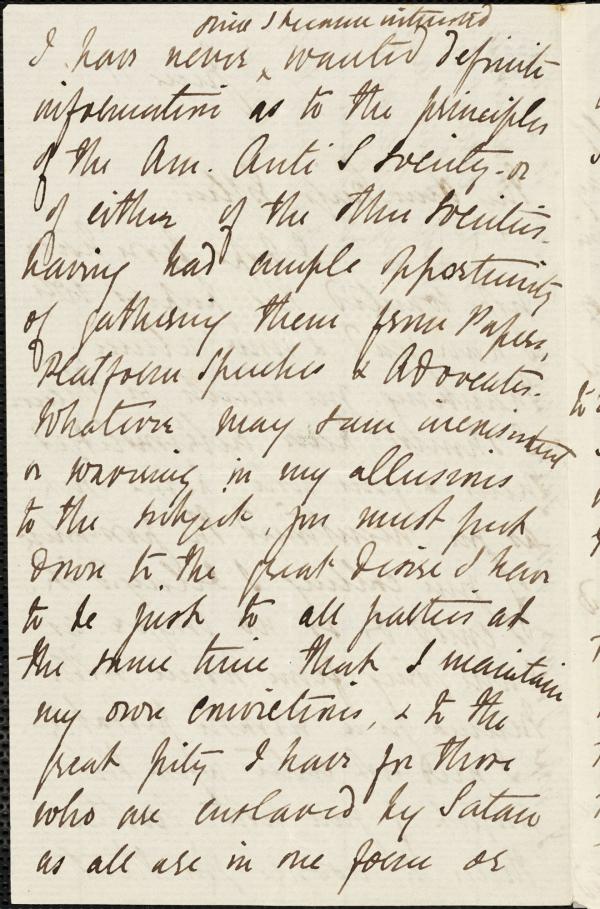 since I became interested
I have never ^ wanted definite
information as to the principles
of the Am. Anti S Society - or
of either of the other Societies -
having had ample opportunity
of gathering them from Papers,
Platform Speeches & Advocates.
Whatever may seem inconsistent
or wavering in my allusions
to the subject, you must put
down to the great desire I have
to be just to all parties at
the same time that I maintain
my own convictions, & to the
great pity I have for those
who are enslaved by Satan
as all are in one form or